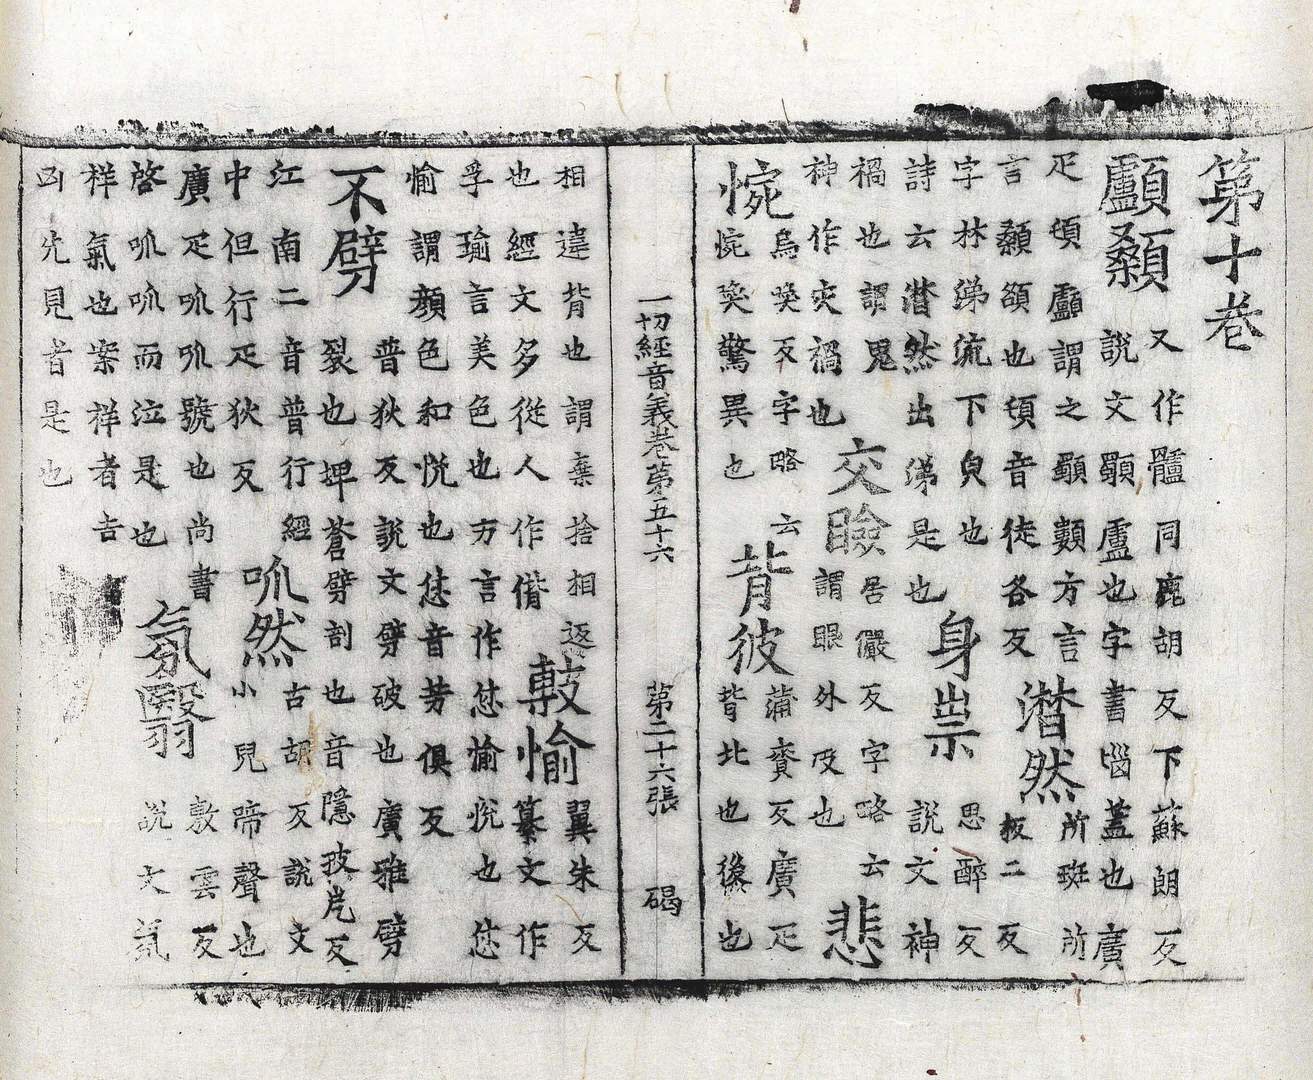 第十卷
顱顙 又作髗同鹿胡反下蘇朗反說文顯盧也字書𦛁蓋也廣
疋頓顱謂之顯䫫方言言顙頟也頓音徒各反 潸然 所班所板二反
字林涕流下皃也詩云潸然出涕是也 身祟 思醉反說文神
禍也謂鬼神作灾禍也 交瞼 居儼反字略云謂眼外皮也 悲
惋 烏喚反字略云惋㷟驚異也 背彼 蒲賚反廣疋背北也後也
一切經音義卷第五十六 第二十六張 碣
相違背也謂棄捨相返也經文多從人作偝 敷愉 翼朱反纂文作
孚瑜言美色也方言作怤愉悅也怤愉謂顏色和悅也怤音芳俱反
不劈 普狄反說文劈破也廣雅劈裂也埤蒼劈剖也音隱披厄反
江南二音普行經中但行疋狄反 呱然 古胡反說文小兒啼聲也
廣疋呱呱號也尚書啓呱呱而泣是也 氛翳 敷雲反說文氛
祥氣也案祥者吉凶先見者是也